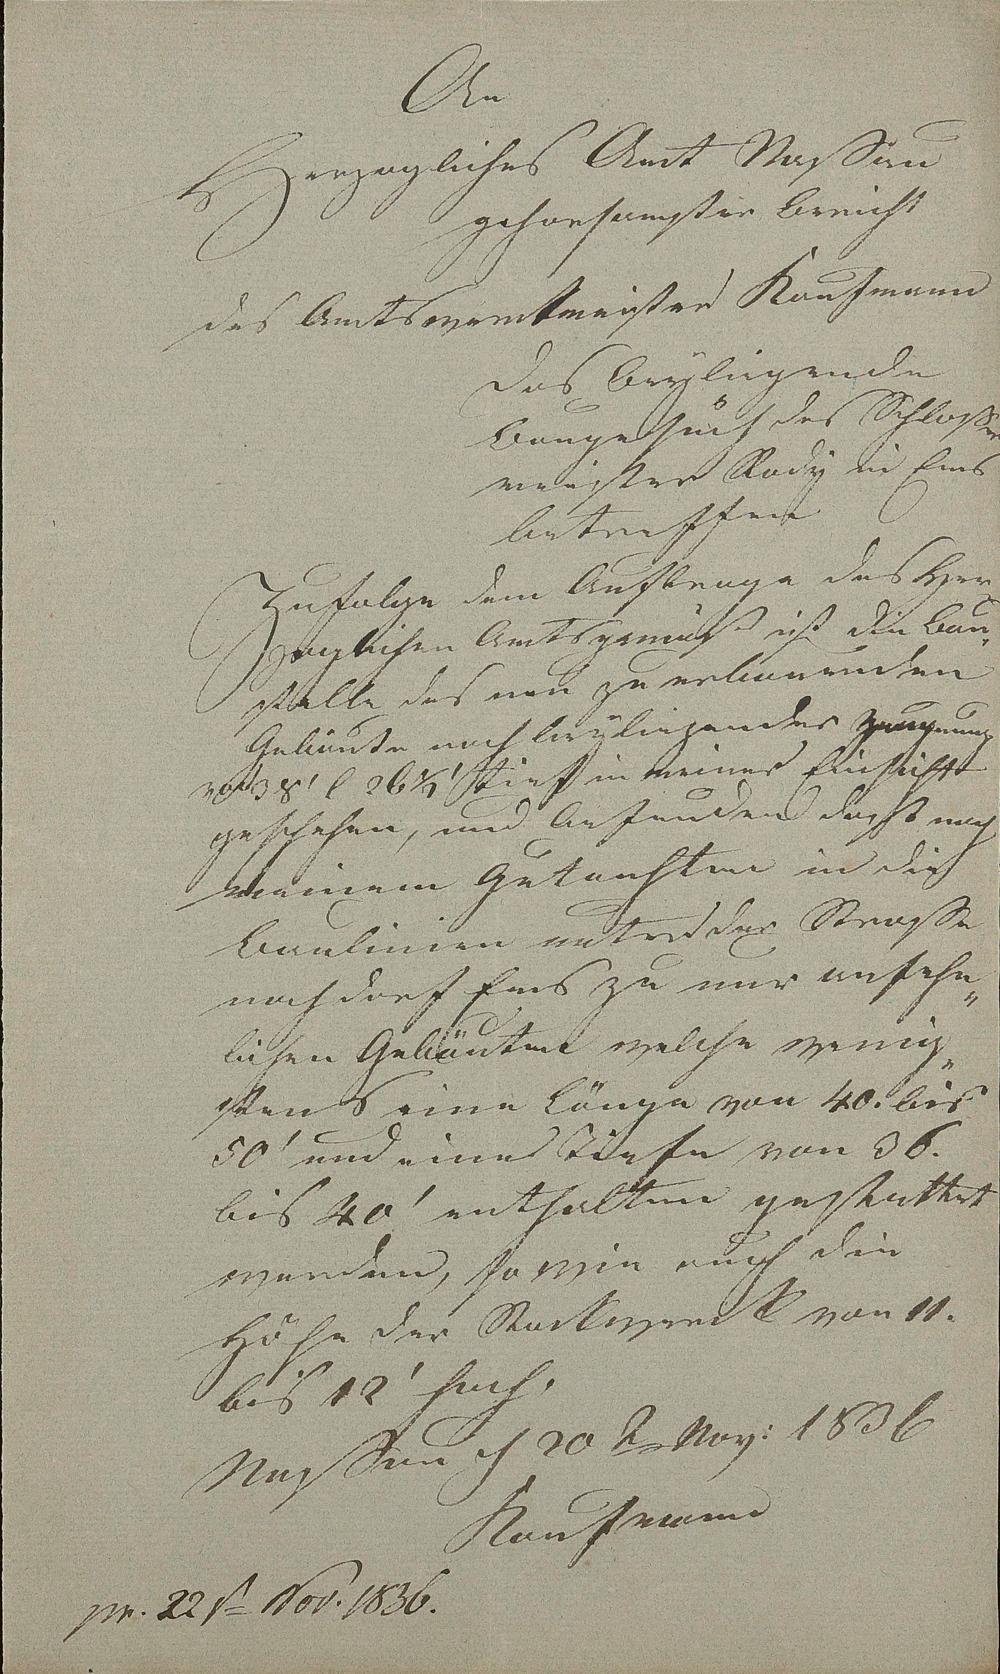 An
Herzogliches Amt Nassau
gehorsamster Bericht
des Amtswerkmeister Kaufmann
das beyliegende
Baugesuch des Schlosser
meister Rody in Ems
betreffen
Zufolge dem Auftrage des Her
zoglichen Amts gemäß ist die Bau„
stelle des neu zu erbauenden
Gebäute nach beyliegender
38' 26½' tief in meiner Einsicht
geschehen, und befunden daß nach
meinem Gutachten in die
Baulinien der Strasse
nach dorf Ems zu nur ansehn„
lichen Gebäuten welche wenig„
stens eine Länge von 40. bis
50' und eine Tiefe von 36.
bis 40' enthalten gestattet
werden, so wie auch die
Höhe der Stockwerck von 11.
bis 12' hoch.
Nassau d 20 t Nov: 1836
Kaufmann
pr. 22 st Nov. 1836.